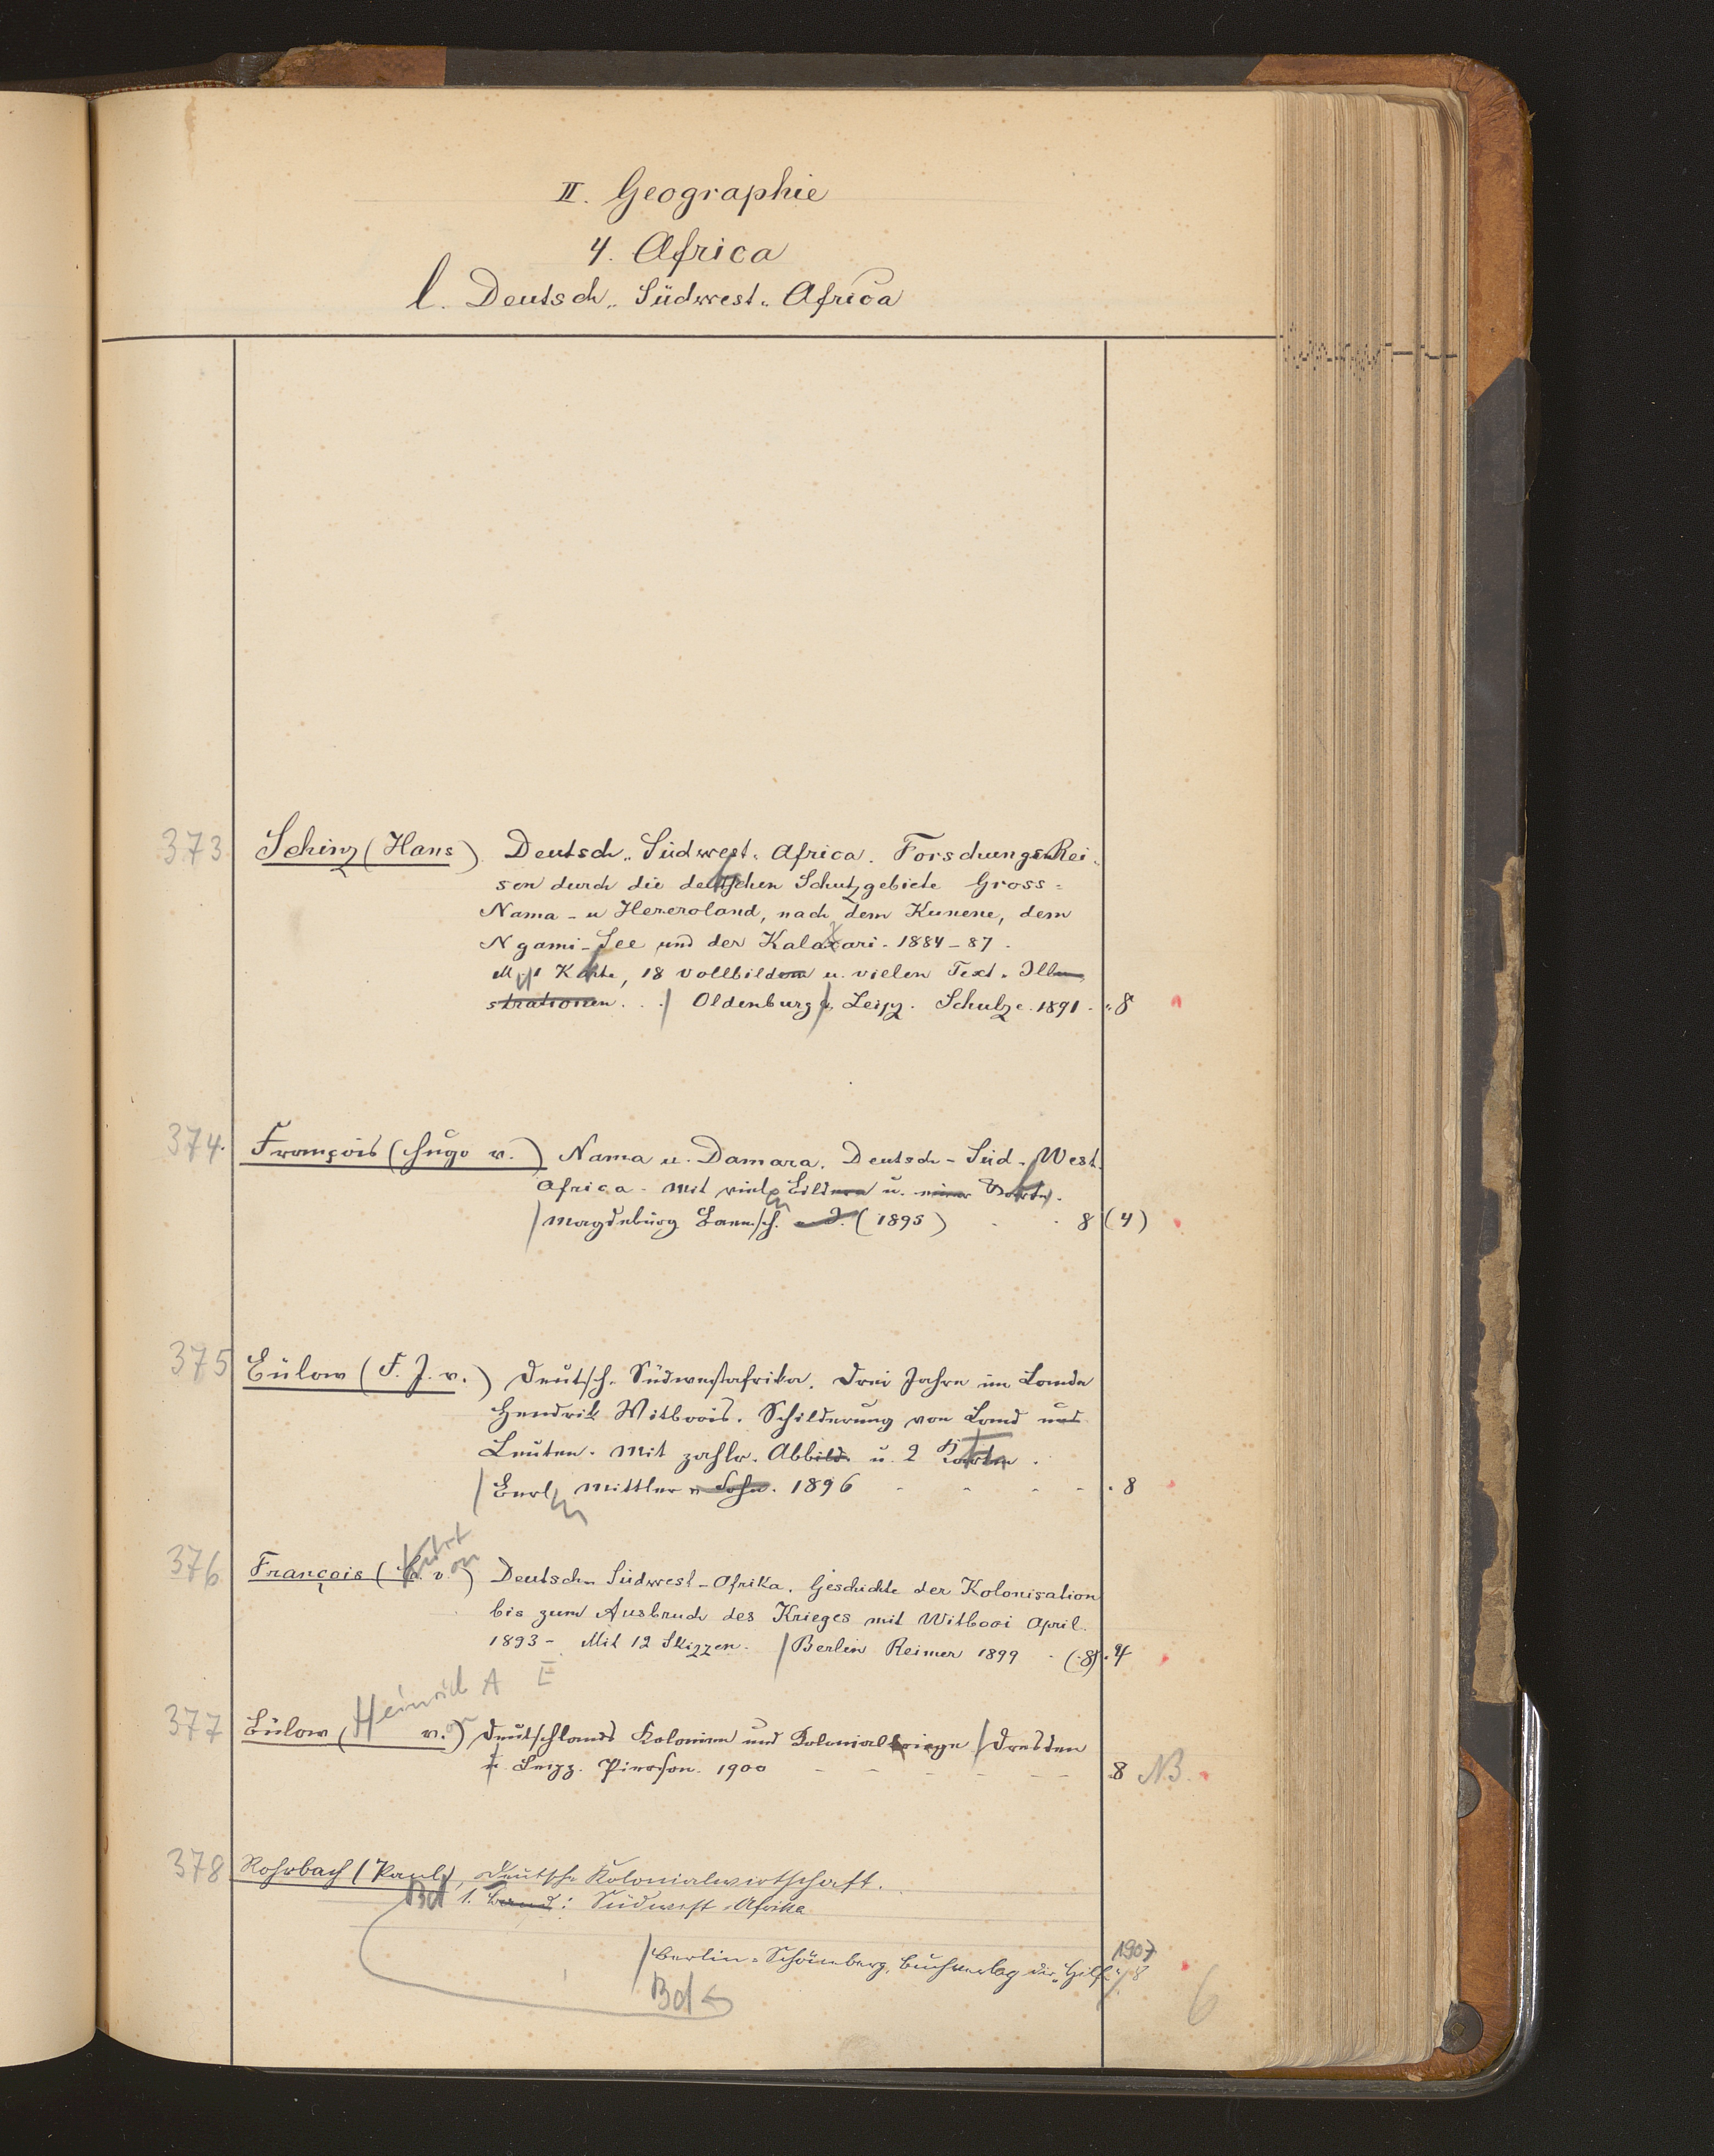 II. Geographie
4. Africa
l. Deutsch-Südwest-Africa
373 Schinz (Hans) Deutsch-Südwest-Africa. Forschungs-Rei-
sen durch die deutschen Schutzgebiete Gross-
Nama- u Hereroland, nach dem Kunene, dem
Ngami-See und der Kalaxari. 1884-87.
M. 1 Karte, 18 Vollbildern u. vielen Text-Illu
strationen. / Oldenburg u. Leipz. Schulze. 1891. 8
374. François (Hugo v.) Nama u. Damara. Deutsch-Süd-West
Africa. Mit viel. Bildern u. einer Karte.
/ Magdeburg Baensch. (1895) 8 (4)
375 Bülow (F. J. v.) Deutsch-Südwestafrika. Drei Jahre im Lande
Hendrik Witboois. Schilderung von Land und
Leuten. Mit zahlr. Abbild. u. 2 Karten.
/ Berl. Mittler u Sohn. 1896 8
Kurt on
376 François ( v.) Deutsch-Südwest-Afrika. Geschichte der Kolonisation
bis zum Ausbruch des Krieges mit Witbooi April
1893-. Mit 12 Skizzen. / Berlin Reimer 1899 (8) 4
Heinrich A E
377 Bülow ( v.) Deutschlands Kolonien und Kolonialkriege / Dresden
u. Leipz. Pierson. 1900 8 NB.
378 Rohrbach (Paul), Deutsche Kolonialwirtschaft.
Bd 1. Band: Südwest-Afrika
1907
/ Berlin-Schöneberg, Buchverlag der "Hilfe" 8
Bd
6